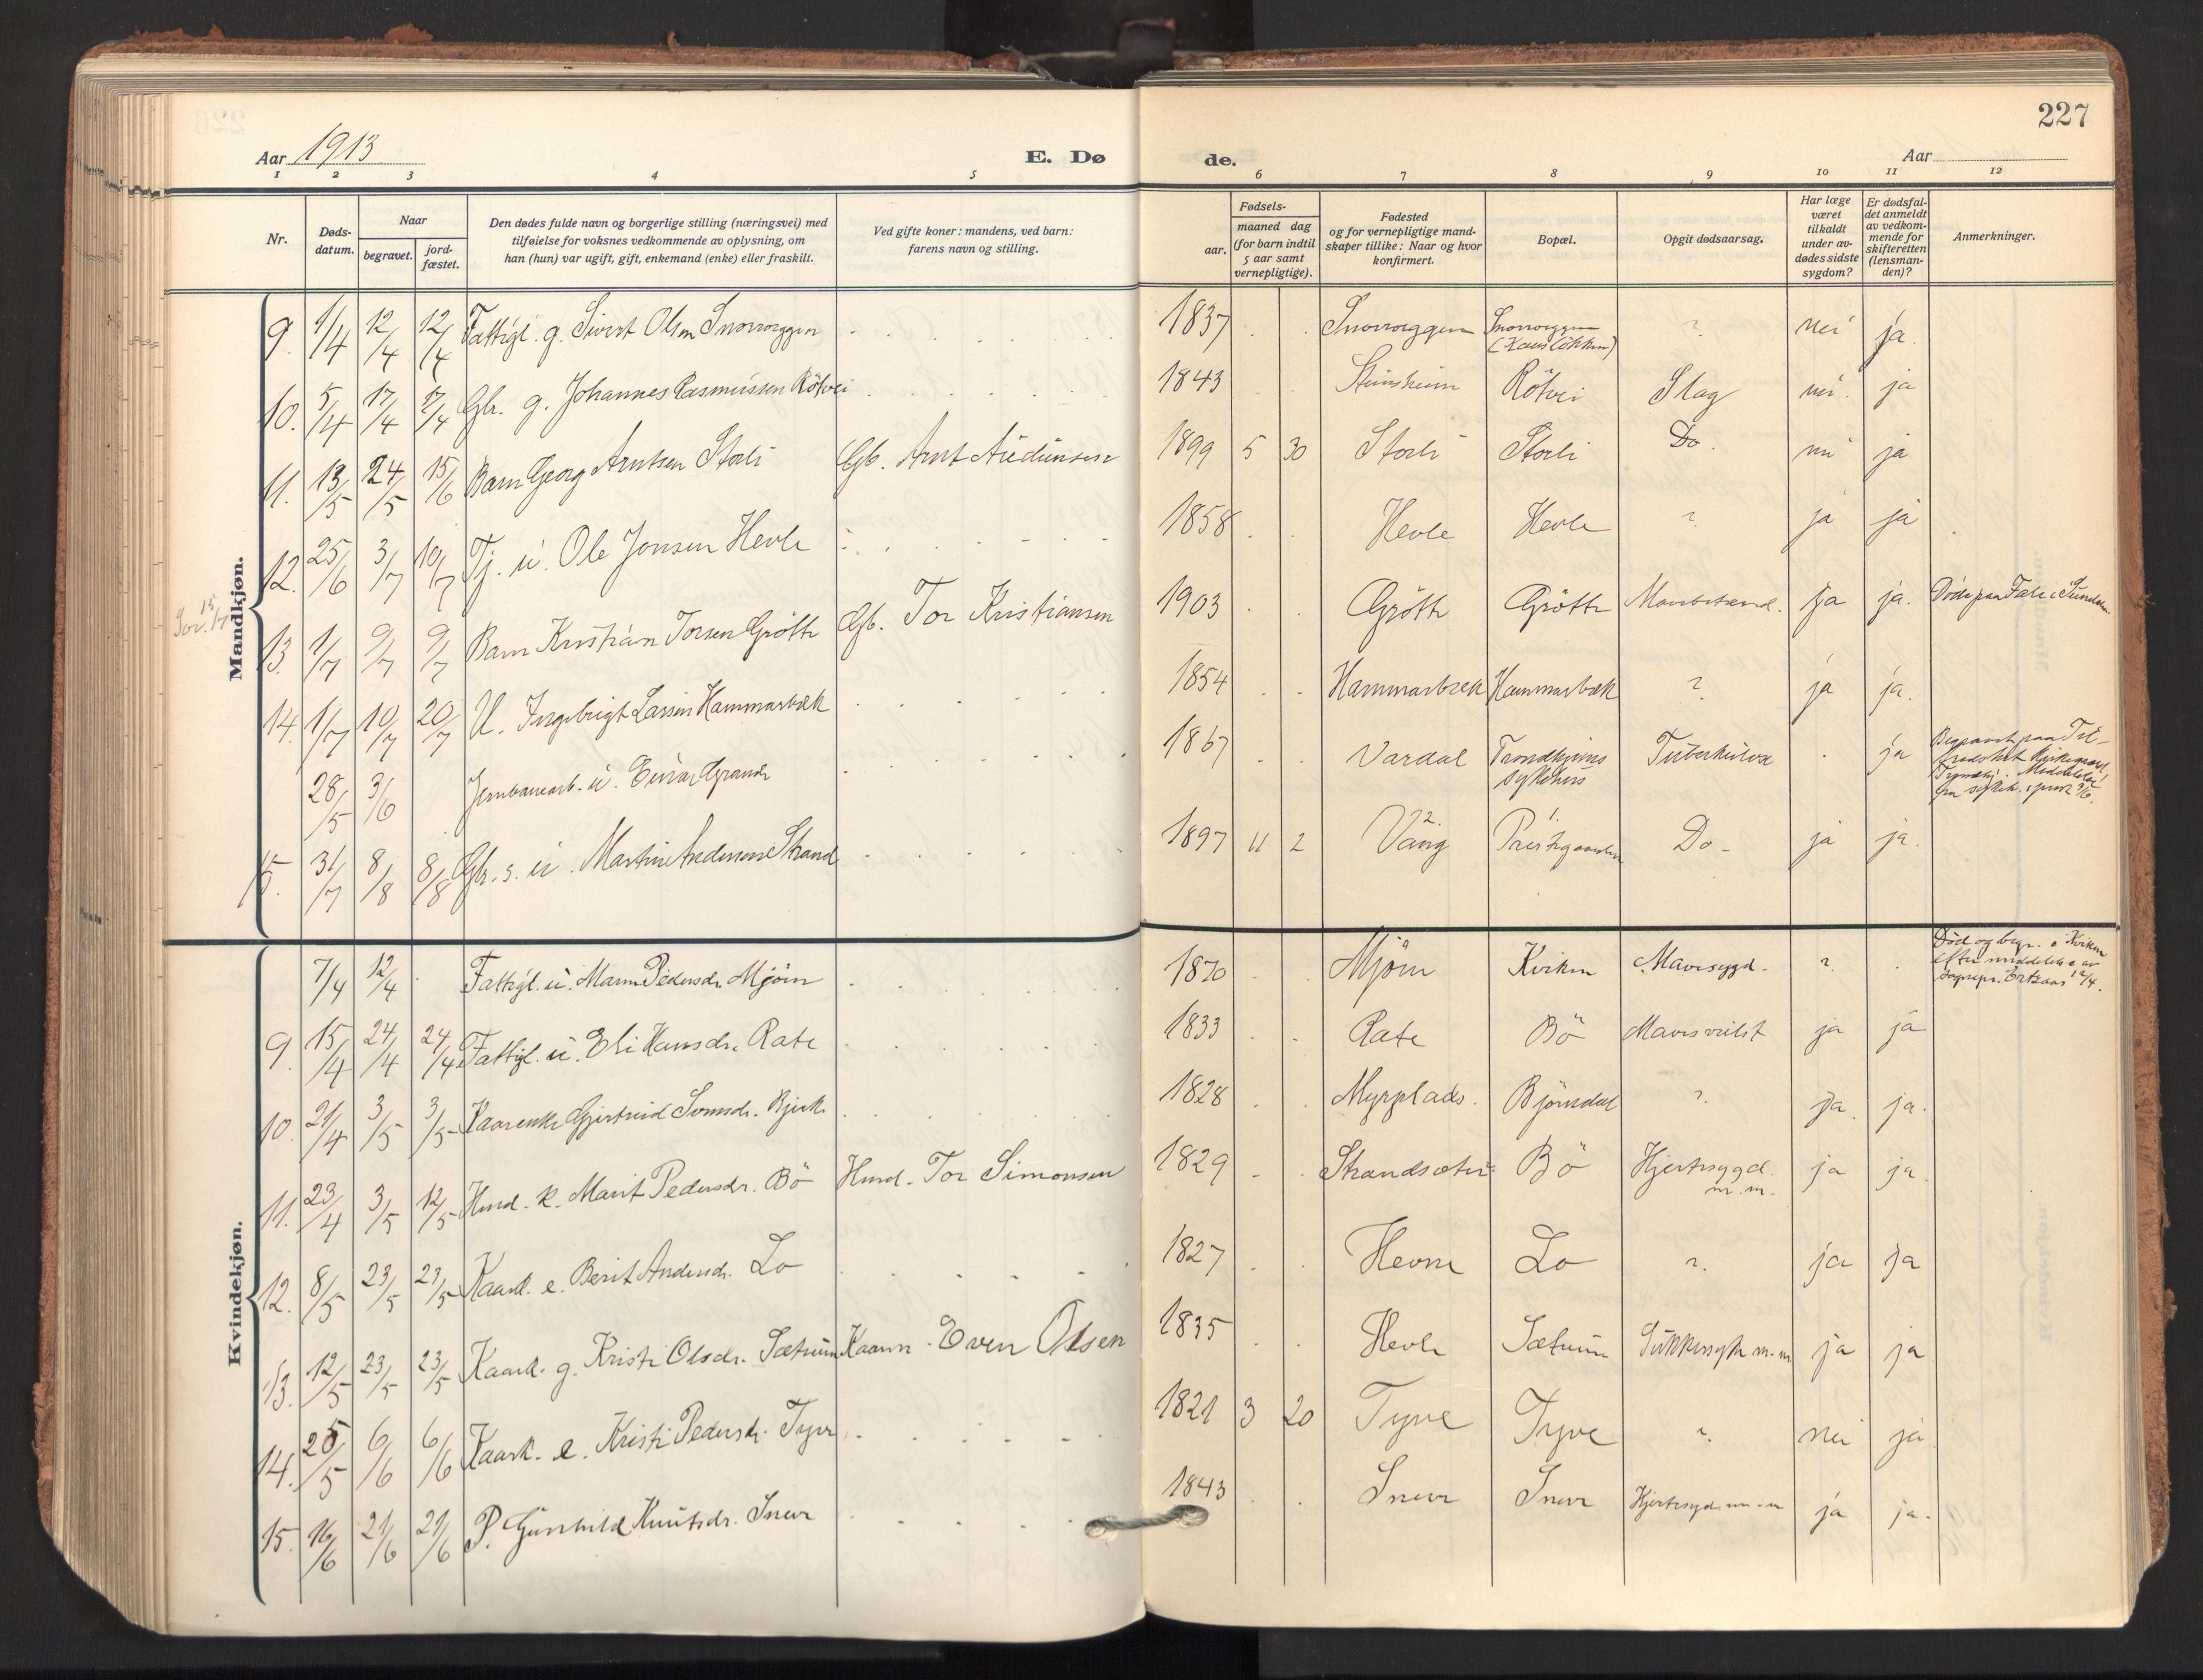 227
Aar 1913
E. Dø
de.
Aar
1 2 3 4 5 6 7 8 9 10 11 12
Nr.
Døds-
datum.
Naar
begravet.
jord-
fæstet.
Den dødes fulde navn og borgerlige stilling (næringsvei) med
tilføielse for voksnes vedkommende av oplysning, om
han (hun) var ugift, gift, enkemand (enke) eller fraskilt.
Ved gifte koner: mandens, ved barn:
farens navn og stilling.
Fødsels-
aar.
maaned dag
(for barn indtil
5 aar samt
vernepligtige).
Fødested
og for vernepligtige mand-
skaper tillike: Naar og hvor
konfirmert.
Bopæl.
Opgit dødsaarsag.
Har læge
været
tilkaldt
under av-
dødes sidste
sygdom?
Er dødsfal-
det anmeldt
av vedkom-
mende for
skifteretten
(lensman-
den)?
Anmerkninger.
Mandkjøn.
9. 1/4 12/4 12/4 Fattigl. g. Sivert Olsen Snovroggen 1837 Snovroggen Snovroggen ? nei ja.
10. 5/4 17/4 17/4 Gbr. g. Johannes Rasmussen Rötvei 1843 Steinsheim Rötvei Slag nei ja
11. 13/5 24/5 15/6 Barn Georg Arntsen Storli Gb. Arnt Audunsen 1899 5 30 Storli Storli Do. nei ja
12. 25/6 3/7 10/7 Tj. u. Ole Jonsen Hevle 1858 Hevle Hevle ? ja ja
13. 1/7 9/7 9/7 Barn Kristian Torsen Grötte Gb. Tor Kristiansen 1903 Grötte Grötte ja ja. Döde paa Fale i Sundalen
14. 1/7 10/7 20/7 U. Ingebrigt Larsen Hammarbæk 1854 Hammarbæk Hammarbæk ? ja ja.
28/5 3/6 Jernbanearb. u. Einar Grande 1867 Vardal Trondhjems sykehus Tuberkulose ja Begravet paa
15. 31/7 8/8 8/8 Gbr. s. u. Martin Andersen Strand 1897 11 2 Vang Prestgaarden Do ja ja.
Kvindekjøn.
7/4 12/4 Fattigl. u. Maren Pedersdr. Mjöen 1870 Mjöen Kvikne Mavesygd. ? Död og begr. i Kvikne
efter meddelelse av
sognepr. Ertzaas 12/4.
9. 15/4 24/4 24/4 Fattigl. u. Eli Hansdr. Rate 1833 Rate Bö Mavesvulst ja ja
10. 21/4 3/5 3/5 Kaarenke Gjertrud Bjerke 1828 Myrplads. Björndal ? ja. ja.
11. 23/4 3/5 12/5 Husd. k. Marit Pedersdr. Bö Husd. Tor Simonsen 1829 Strandsæter Bö Hjertesygd.
m.m. ja ja
12. 8/5 23/5 23/5 Kaark. e. Berit Andersdr. Lo 1827 Hevne Lo ? ja ja
13. 12/5 23/5 23/5 Kaark. g. Kristi Olsdr. Sætrum Kaarm. Even Olsen 1835 Hevle Sætrum Sukkersyke m.m ja ja
14. 25/5 6/6 6/6 Kaark. e. Kristi Pedersdr. Tyve 1821 3 20 Tyve Tyve ? nei ja
15. 16/6 21/6 21/6 P. Gunhild Knutsdr. Sneve 1843 Sneve Sneve Hjertesygd. m-m ja ja.